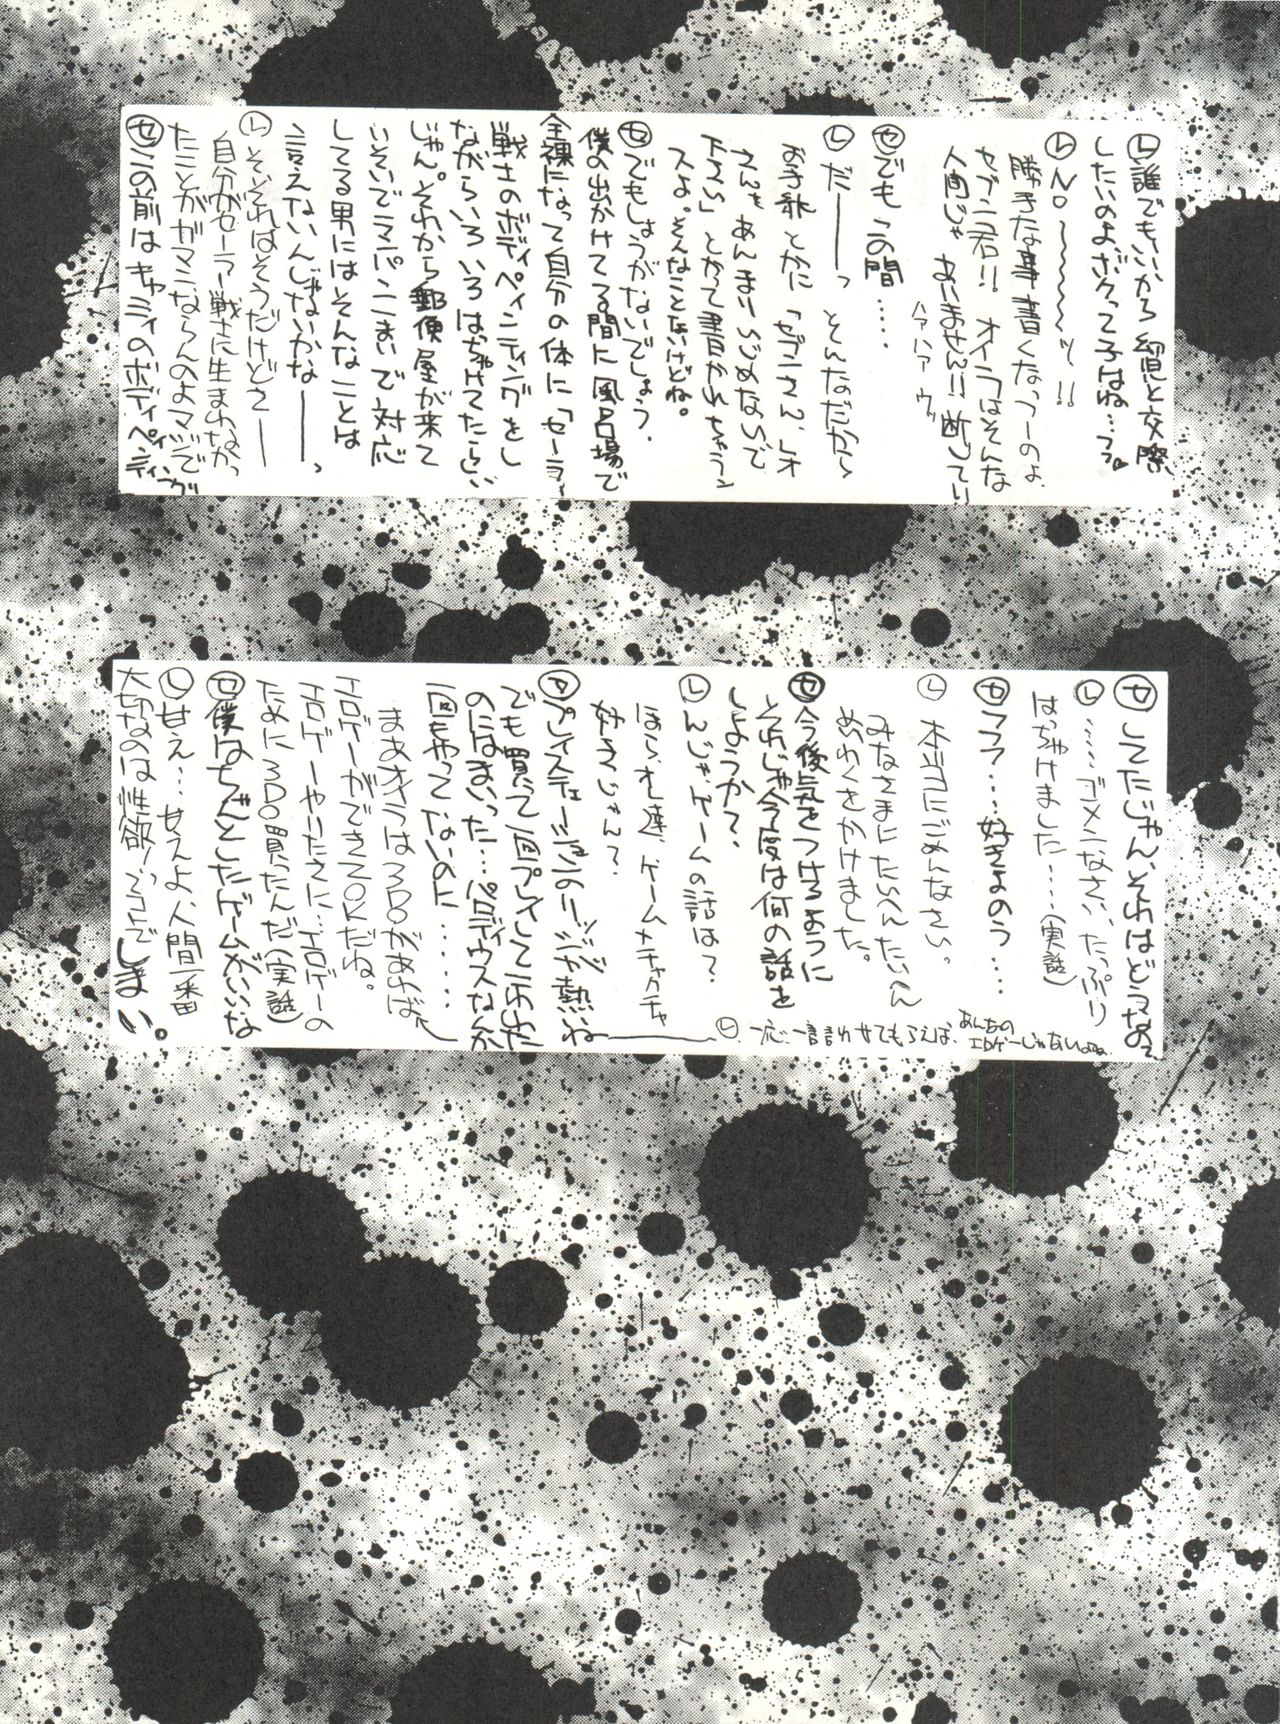 Ⓛ誰でもいいから 児と交際
したいのよボクって子はね…フフ♡
ⓁんO〜〜〜〜〜ッ!!
勝手な事書くなっつーのよ
セブン君!! オイラはそんな
人間じゃ ありません!!断じてい
ハァハァ ウッ
㋝でも この間....
Ⓛだーーーっ そんなのだから
お手紙とかに「セブンさん、レオ
さんをあんまりいじめないで
下さい」とかって書かれちゃうン
スよ。そんなことないけどね。
㋝でもしょうがないでしょう.
僕の出かけてる間に風呂場で
全裸になって自分の体に「セーラー
戦士のボディペィンティングをし
ながらいろいろはっちゃけてたらしい
じゃん。それから郵便屋が来て
いそいでコマパンこまいで対応
してる男にはそんなことは
言えないんじゃないかなーーっ
Ⓛそ、それはそうだけどさー
自分がセーラー戦士に生まれなかっ
たことがガマンならんのよマジで
㋝この前はキャミィのボディペィンティング
㋝してたじゃん、それはどうなの?
Ⓛ.....ゴメンなさい、たっぷり
はっちゃけました.....(実話)
㋝フフフ...好きよのう...
Ⓛ本当にごめんなさい。
みなさまにたいへんたいへん
めいわくをかけました。
㋝今後気をつけるように
それじゃ今度は何の話を
しようか?
Ⓛんじゃ、ゲームの話は?
ほら、オレ達、ゲームメチャクチャ
好きじゃん?
㋝プレイステェーションのリッジや熱ね
でも買って一回プレイして一死した
のにはまいった...パロディウスなんか
一回もやってないのに......
まあオイラは3DOがあれば←
エロゲーができてOKだね。
エロゲーやりたさに...エロゲーの
ために3DO買ったんだ(実話)
㋝僕はちゃんとしたゲームがいいな
Ⓛ甘え...甘えよ、人間一番
大切なのは性欲!ってコトで
しまい。
Ⓛ 一応一言言わせてもらえば、あんもの
エロゲーじゃないよね